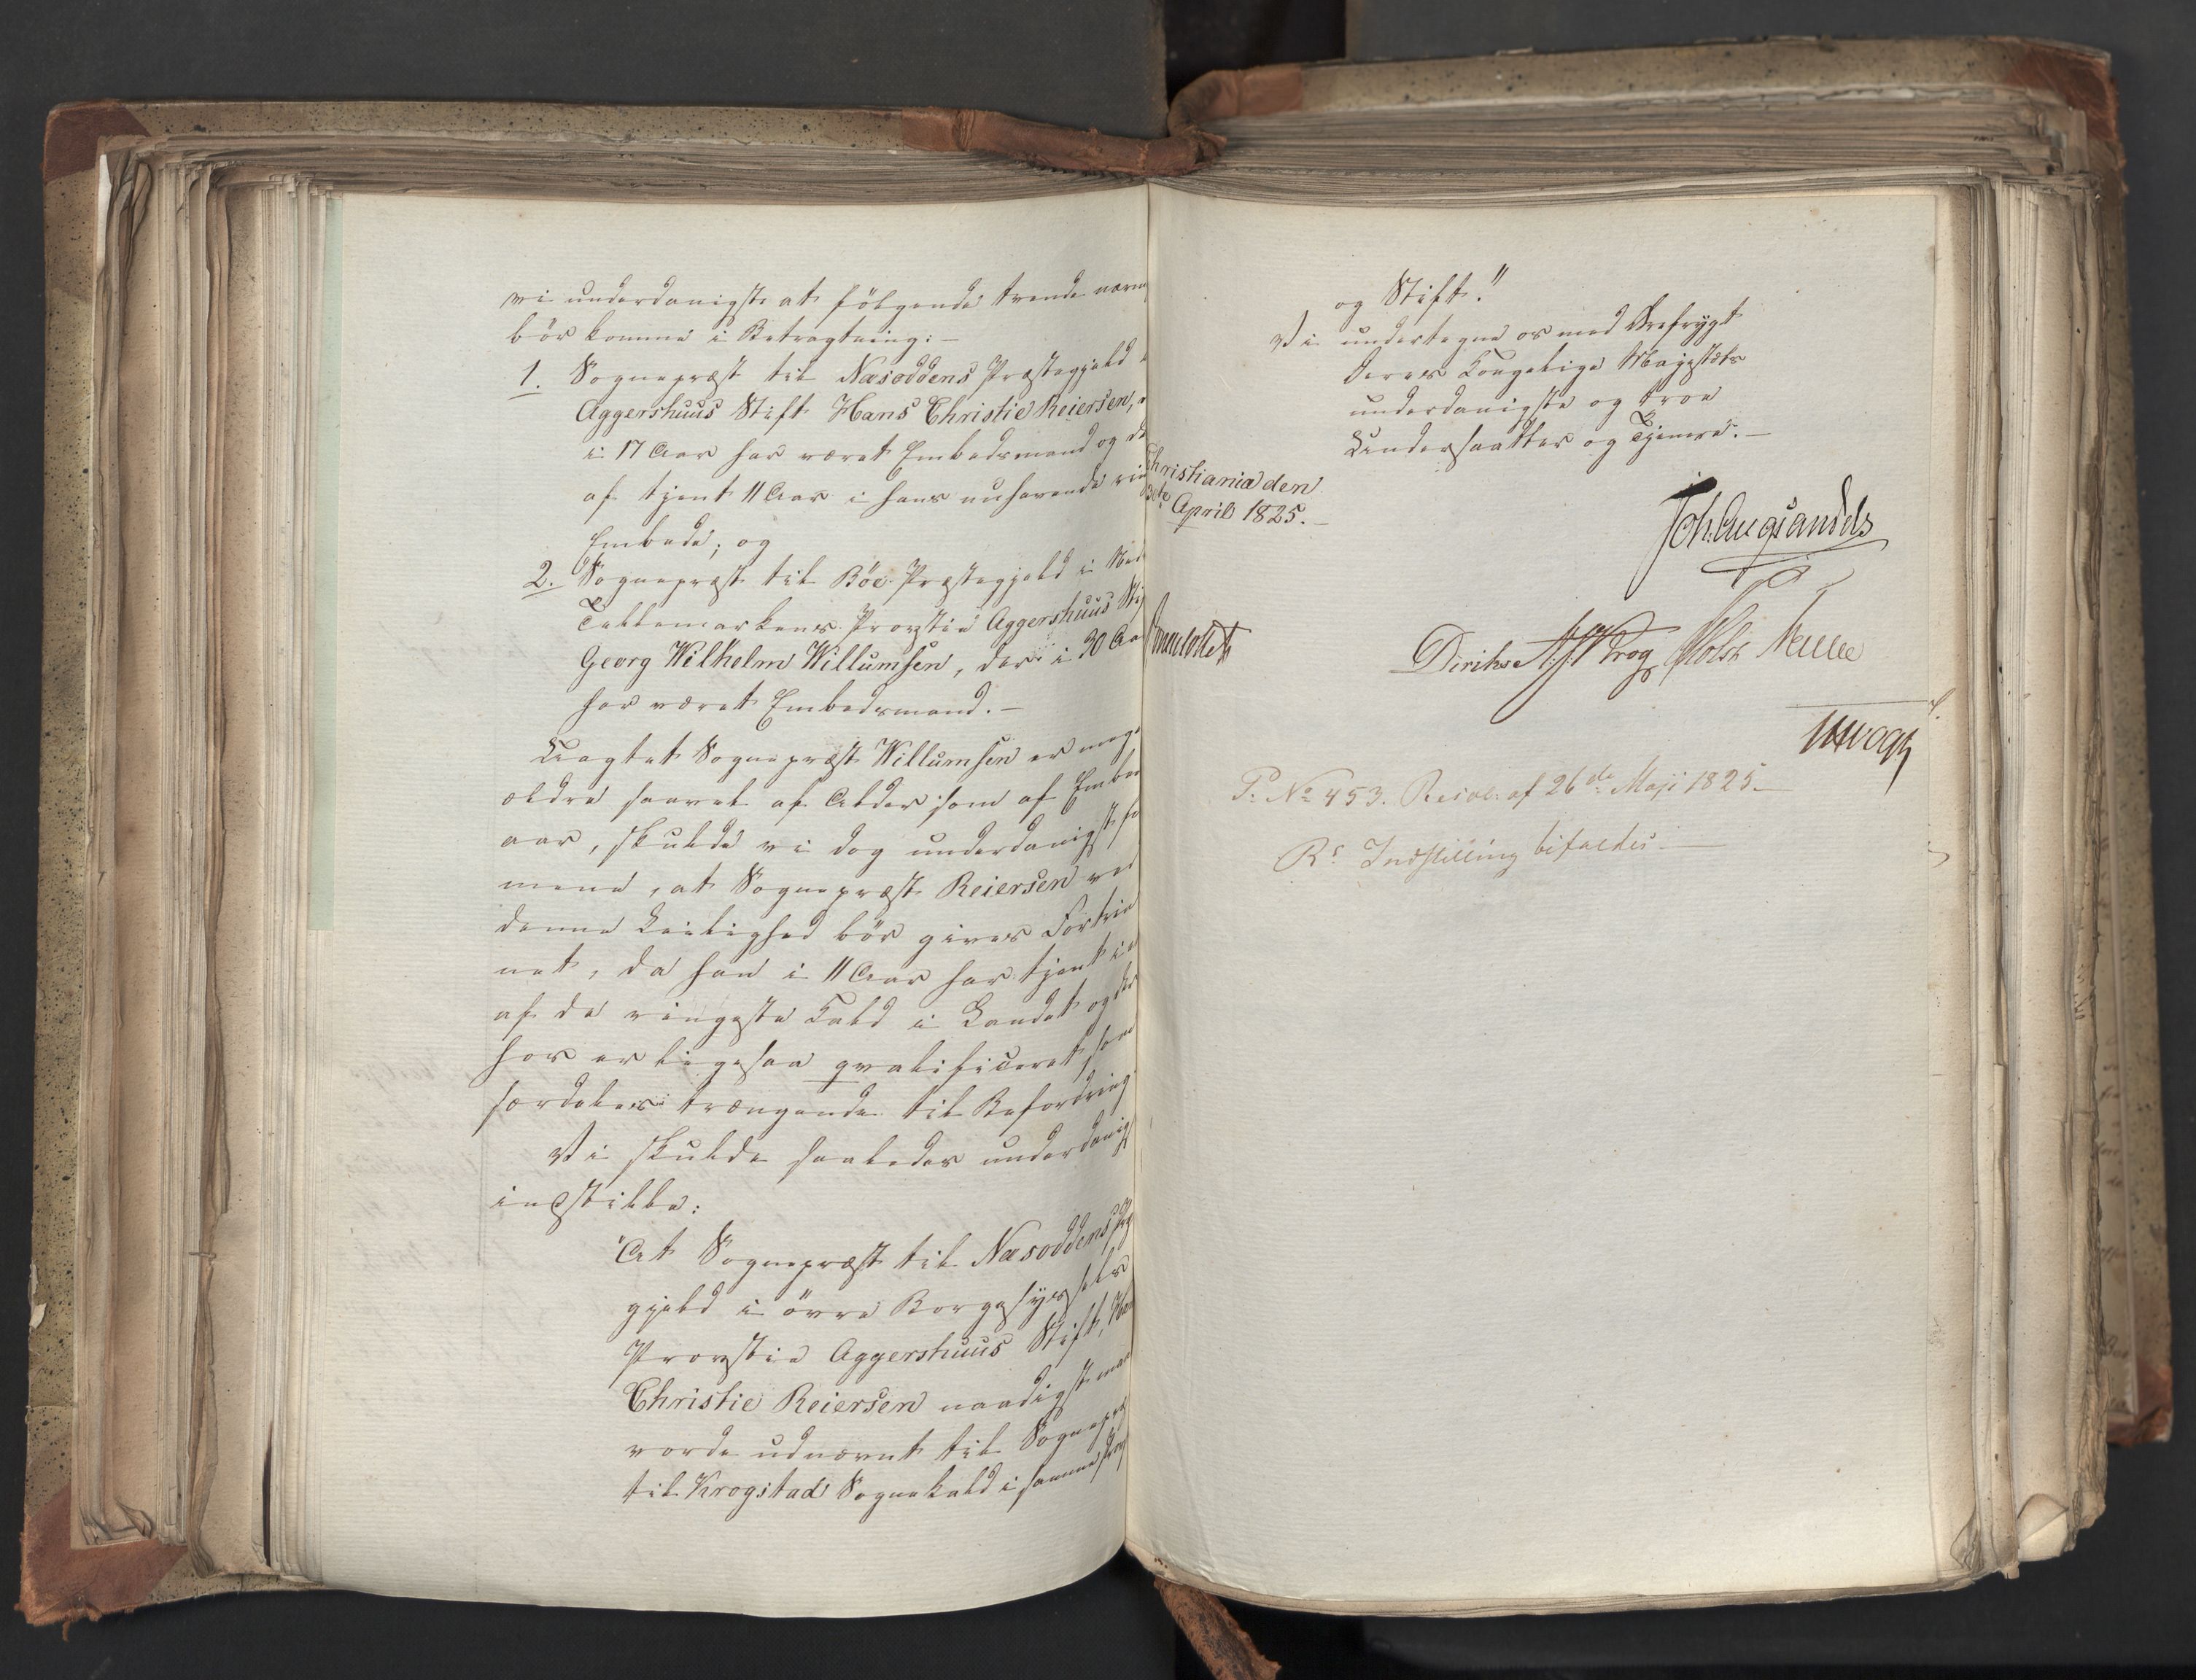 vi underdanigst at følgende trende nærm
bör komme i Betragtning:-
1. Sognepræst til Næsoddens Præstegjeld i
Aggershuus Stift Hans Christie Reiersen,
i 17 Aar har været Embedsmand og de
af tjent 11 Aar i hans nuhavende rin
Embede; og
2. Sognepræst til Böe Præstegjeld i Ned
Tellemarkens Provstie Aggershuus Stif
Georg Wilhelm Willumsen, der i 30 Aar
har været Embedsmand.-
Uagtet Sognepræst Willumsen er meg
ældre saavel af Alder som af Embed
aar, skulde vi dog underdanigst for
mene, at Sognepræst Reiersen ved
denne Leilighed bör gives Fortrin
net, da han i 11 Aar har tjent i et
af de ringeste Kald i Landet og der
for er ligesaa qvalificeret som
særdeles trængende til Befordring
Vi skulde saaledes underdanigst
indstille:
"At Sognepræst til Næsoddens Præste
gjeld i övre Borgesyssels
Provstie Aggershuus Stift, Han
Christie Reiersen naadigst maa
vorde udnævnt til Sognepræ
til Krogstad Sognekald i samme Prov
og Stift."
Vi undertegne os med Ærefrygt
Deres Kongelige Majestæts
underdanigste og troe
Undersaatter og Tjenere.-
Christiania den
April 1825.-
Joh. Aug. Sandels
Sommerfeldt
Diriks Krog Holst
Vogt
P. No 453. Resol. af 26de Maji 1825.
Rs Indstilling bifaldes